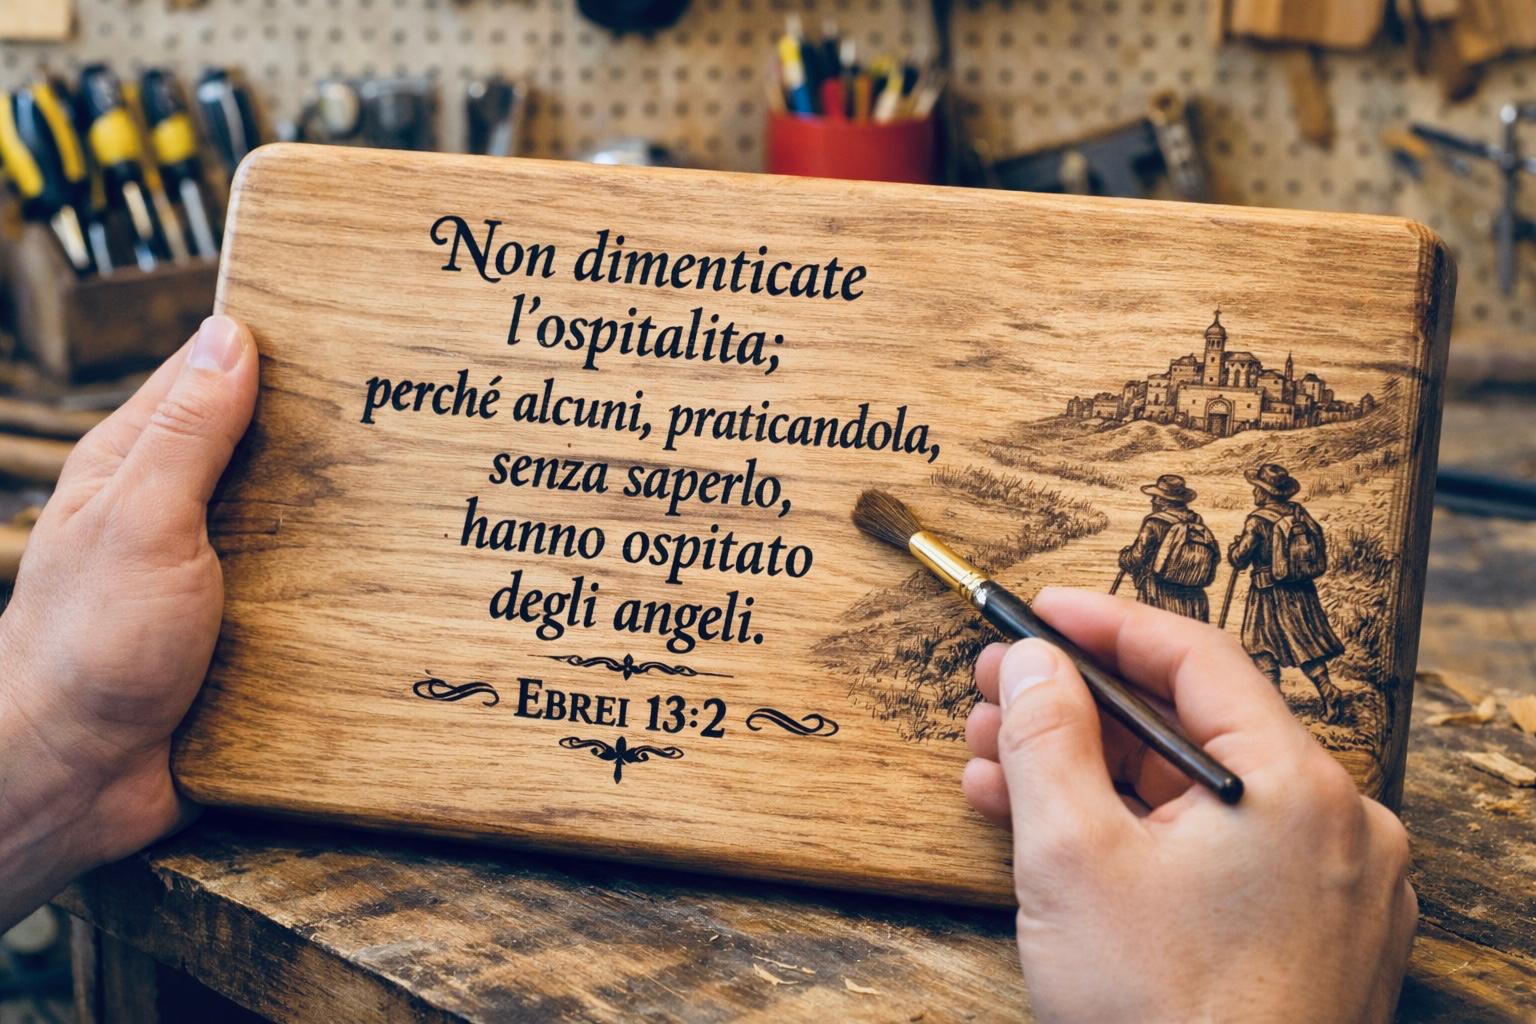 Non dimenticate
l'ospitalita;
perché alcuni, praticandola,
senza saperlo,
hanno ospitato
degli angeli.
EBREI 13:2